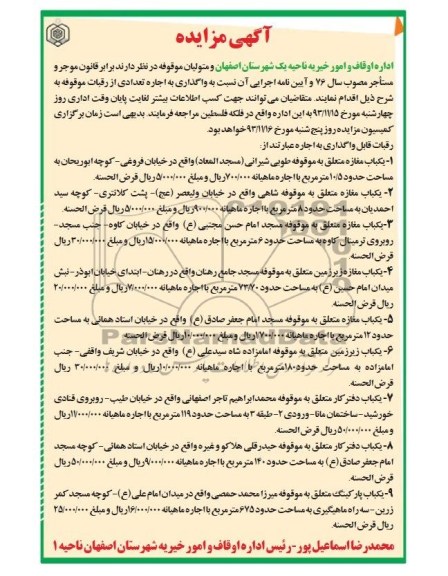 آگهی مزایده
اداره اوقاف و امور خیریه ناحیه یک شهرستان اصفهان و متولیان موقوفه در نظر دارند برابر قانون موجر و
مستأجر مصوب سال ۷۶ و آیین نامه اجرایی آن نسبت به واگذاری به اجاره تعدادی از رقبات موقوفه به
شرح ذیل اقدام نمایند. متقاضیان می توانند جهت کسب اطلاعات بیشتر لغایت پایان وقت اداری روز
چهارشنبه مورخ ۹۳/۱۱/۱۵ به این اداره واقع در فلکه فلسطین مراجعه فرمایند. بدیهی است زمان برگزاری
کمیسیون مزایده روز پنج شنبه مورخ ۹۳/۱۱/۱۶ خواهد بود.
رقبات قابل واگذاری به اجاره عبارتند از:
۱- یکباب مغازه متعلق به موقوفه طوبی شیرانی (مسجد المعاد) واقع در خیابان فروغی - کوچه ابوریحان به
مساحت حدود ۱۰/۵ متر مربع با اجاره ماهیانه ۷۰۰/۰۰۰ ریال و مبلغ ۵/۰۰۰/۰۰۰ ریال قرض الحسنه.
۲- یکباب مغازه متعلق به موقوفه شاهی واقع در خیابان ولیعصر (عج) - پشت کلانتری - کوچه سید
احمدیان به مساحت حدود ۸ متر مربع با اجاره ماهیانه ۹۰۰/۰۰۰ ریال و مبلغ ۵/۰۰۰/۰۰۰ ریال قرض الحسنه.
۳- یکباب مغازه متعلق به موقوفه مسجد امام حسن مجتبی (ع) واقع در خیابان کاوه - جنب مسجد -
روبروی ترمینال کاوه به مساحت حدود ۶ متر مربع با اجاره ماهیانه ۱۵/۰۰۰/۰۰۰ ریال و مبلغ ۳۰/۰۰۰/۰۰۰ ریال
قرض الحسنه.
۴- یکباب مغازه زیرزمین متعلق به موقوفه مسجد جامع رهنان واقع در رهنان - ابتدای خیابان ابوذر - نبش
میدان امام حسین (ع) به مساحت حدود ۷۲/۷۰ متر مربع با اجاره ماهیانه ۷/۰۰۰/۰۰۰ ریال و مبلغ ۲۰/۰۰۰/۰۰۰
ریال قرض الحسنه.
۵- یکباب مغازه متعلق به موقوفه مسجد امام جعفر صادق (ع) واقع در خیابان استاد همائی به مساحت
حدود ۱۲ متر مربع با اجاره ماهیانه ۱/۷۰۰/۰۰۰ ریال و مبلغ ۱۰/۰۰۰/۰۰۰ ریال قرض الحسنه.
۶- یکباب زیرزمین متعلق به موقوفه امامزاده شاه سید علی (ع) واقع در خیابان شریف واقفی - جنب
امامزاده به مساحت حدود ۱۸۰ متر مربع با اجاره ماهیانه ۱۰/۰۰۰/۰۰۰ ریال و مبلغ ۳۰/۰۰۰/۰۰۰ ریال
قرض الحسنه.
۷- یکباب دفتر کار متعلق به موقوفه محمد ابراهیم تاجر اصفهانی واقع در خیابان طیب - روبروی قنادی
خورشید - ساختمان مانا - ورودی ۲ - طبقه ۳ به مساحت حدود ۱۱۹ متر مربع با اجاره ماهیانه ۱۱/۰۰۰/۰۰۰ ریال
و مبلغ ۵۰/۰۰۰/۰۰۰ ریال قرض الحسنه.
۸- یکباب دفتر کار متعلق به موقوفه حیدر قلی هلاکو و غیره واقع در خیابان استاد همائی - کوچه مسجد
امام جعفر صادق (ع) به مساحت حدود ۱۴۰ متر مربع با اجاره ماهیانه ۹/۰۰۰/۰۰۰ ریال و مبلغ ۵۰/۰۰۰/۰۰۰ ریال
قرض الحسنه.
۹- یکباب پارکینگ متعلق به موقوفه میرزا محمد حمصی واقع در میدان امام علی (ع) - کوچه مسجد کمر
زرین - سه راه ماهیگیری به مساحت حدود ۶۷۵ متر مربع با اجاره ماهیانه ۱۶/۰۰۰/۰۰۰ ریال و مبلغ ۲۵/۰۰۰/۰۰۰
ریال قرض الحسنه.
محمدرضا اسماعیل پور - رئیس اداره اوقاف و امور خیریه شهرستان اصفهان ناحیه ۱